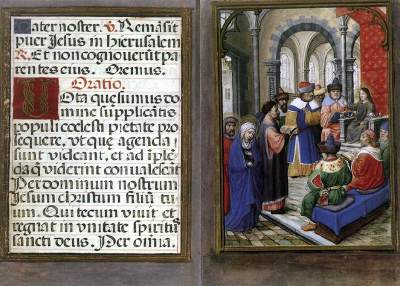 Pater noster. V. Remāsit
puer Jesus in hierusalem
R. Et non cognoverūt pa
rentes eius. Oremus.
Oratio.
Vota quesumus do
mine supplicātis
populi coelesti pietate pro
sequere, vt que agenda
sunt videant, et ad īple
da q̄ viderint convalescāt
Per dominum nostrum
Jesum christum filiū tu
um. Qui tecum vivit et
regnat in vnitate spiritus
sancti deus. Per omīa.